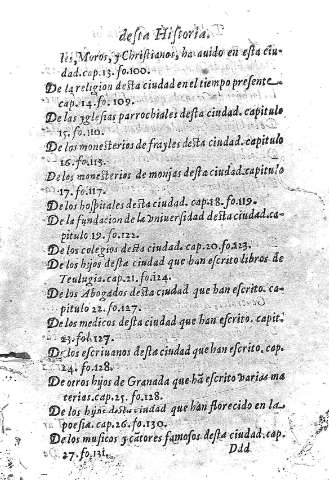 desta Historia.
les, Moros, y Christianos, ha auido en esta ciu-
dad. cap. 13. fo. 100.
De la religion desta ciudad en el tiempo presente
cap. 14. fo. 109.
De las yglesias parrochiales desta ciudad. capitulo
15. fo. 110.
De los monesterios de frayles desta ciudad. capitulo
16. fo. 113.
De los monesterios de monjas desta ciudad. capitulo
17. fo. 117.
De los hospitales desta ciudad. cap. 18. fo. 119.
De la fundacion de la vniuersidad desta ciudad. ca-
pitulo 19. fo. 122.
De los colegios desta ciudad. cap. 20. fo. 123.
De los hijos desta ciudad que han escrito libros de
Teulugia. cap. 21. fo. 124.
De los Abogados desta ciudad que han escrito. ca-
pitulo 22. fo. 127.
De los medicos desta ciudad que han escrito. capit.
23. fol. 127.
De los escriuanos desta ciudad que han escrito. cap.
24. fo. 128.
De otros hijos de Granada que hā escrito varias ma
terias. cap. 25. fo. 128.
De los hijos desta ciudad que han florecido en la
poesia. cap. 26. fo. 130.
De los musicos y cātores famosos desta ciudad. cap.
27. fo. 131.
Ddd